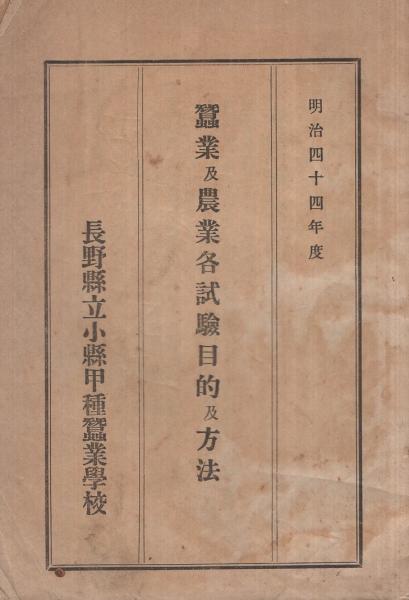 明治四十四年度
蠶業及農業各試驗目的及方法
長野縣立小縣甲種蠶業學校